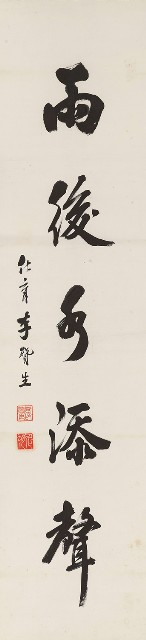 雨後水添聲
李賢生